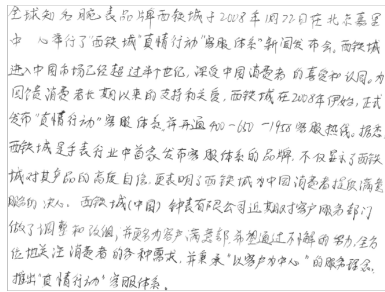 全球知名腕表品牌西铁城于2008年1月22日在北京嘉里
中心举行了"西铁城"真情行动"客服体系"新闻发布会。西铁城
进入中国市场已经超过半个世纪,深受中国消费者的喜爱和认同。为
回馈消费者长期以来的支持和关爱,西铁城在2008年伊始,正式
发布"真情行动"客服体系,并开通400-650-1958客服热线。据悉
西铁城是手表行业中首家发布客服体系的品牌,不仅显示了西铁
城对其产品的高度自信,更表明了西铁城为中国消费者提供满意
服务的决心。西铁城(中国)钟表有限公司近期对客户服务部门
做了调整和改组,并更名为客户满意部,希望通过不懈的努力,全方
位地关注消费者的各种需求,并秉承"以客户为中心"的服务理念,
推出"真情行动"客服体系。